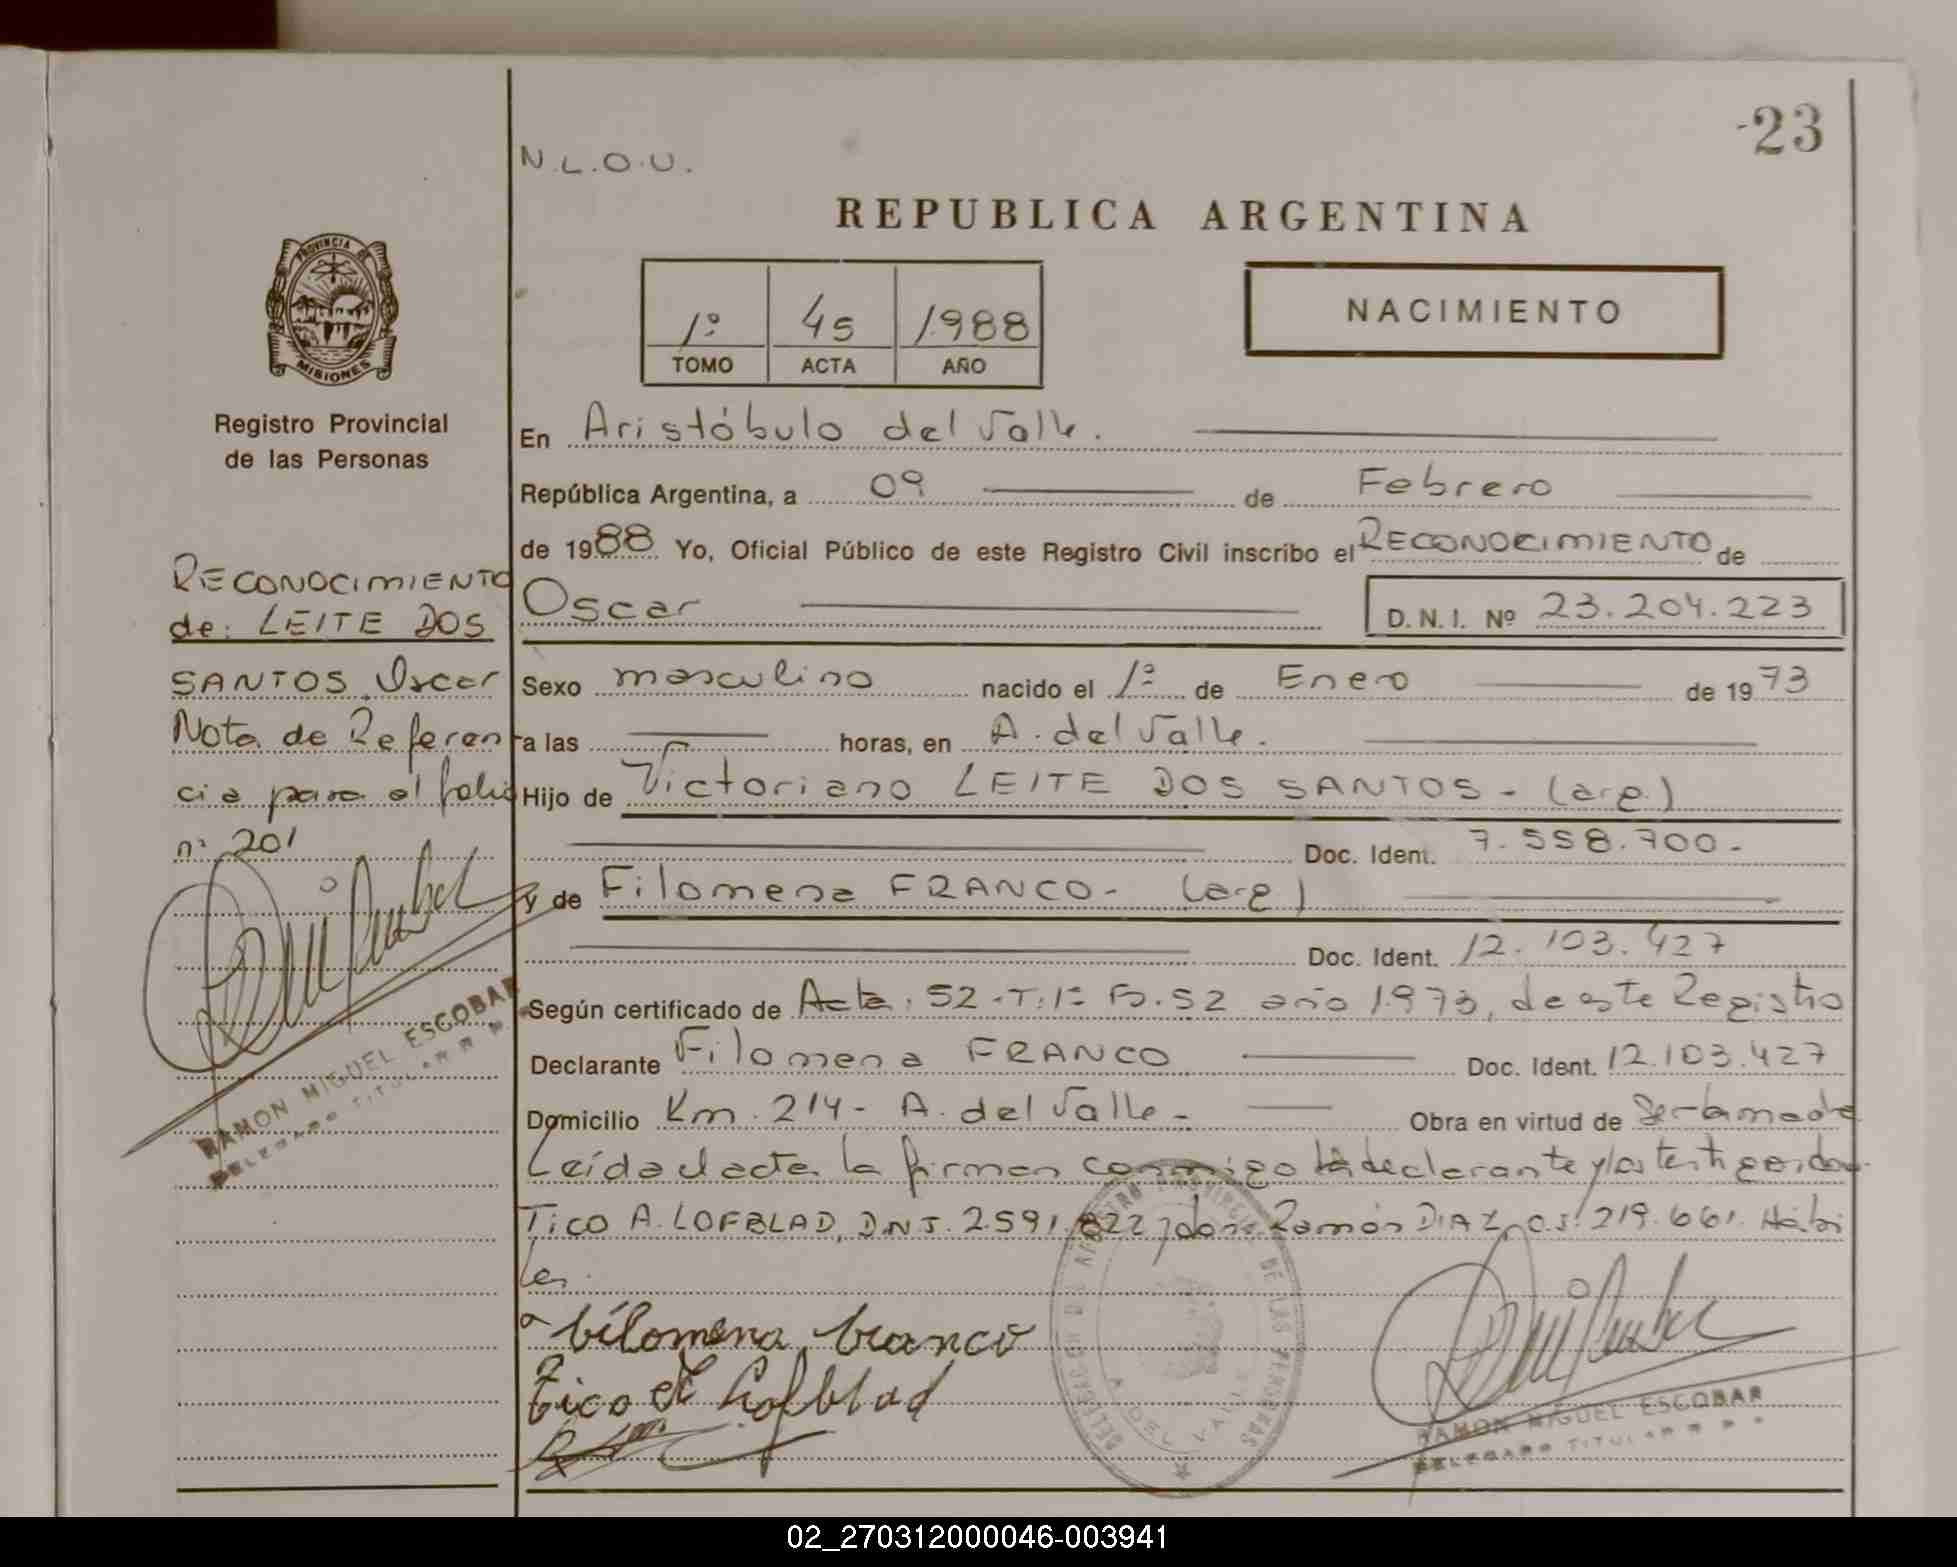 -23
N.L.O.U.
REPUBLICA ARGENTINA
PROVINCIA DE
MISIONES
Registro Provincial
de las Personas
1º 45 1988
TOMO ACTA AÑO
NACIMIENTO
En Aristóbulo del Valle.
República Argentina, a 09 de Febrero
de 1988 Yo, Oficial Público de este Registro Civil inscribo el RECONOCIMIENTO de
Oscar D.N.I. Nº 23.204.223
Sexo masculino nacido el 1º de Enero de 1973
a las horas, en A. del Valle.
Hijo de Victoriano LEITE DOS SANTOS - (arg.)
Doc. Ident. 7.558.700-
y de Filomena FRANCO- (arg)
Doc. Ident. 12.103.427
Según certificado de Acta: 52-T:1º F.52 año 1973, de este Registro
Declarante Filomena FRANCO Doc. Ident. 12.103.427
Domicilio Km. 214- A. del Valle- Obra en virtud de Ser la madre
Leída el acta la firman conmigo la declarante y los testigos: don
TICO A. LOFBLAD, D.N.I. 2.591.822 y don Ramón DIAZ, C.I. 219.661. Hábi
les.
Filomena Franco
Tico A Lofblad
RAMON MIGUEL ESCOBAR
DELEGADO TITULAR
DELEGACION DEL REGISTRO PROVINCIAL DE LAS PERSONAS
A. DEL VALLE
RECONOCIMIENTO
de: LEITE DOS
SANTOS, Oscar
Nota de Referen
cia para el folio
nº 201
RAMON MIGUEL ESCOBAR
DELEGADO TITULAR
02_270312000046-003941